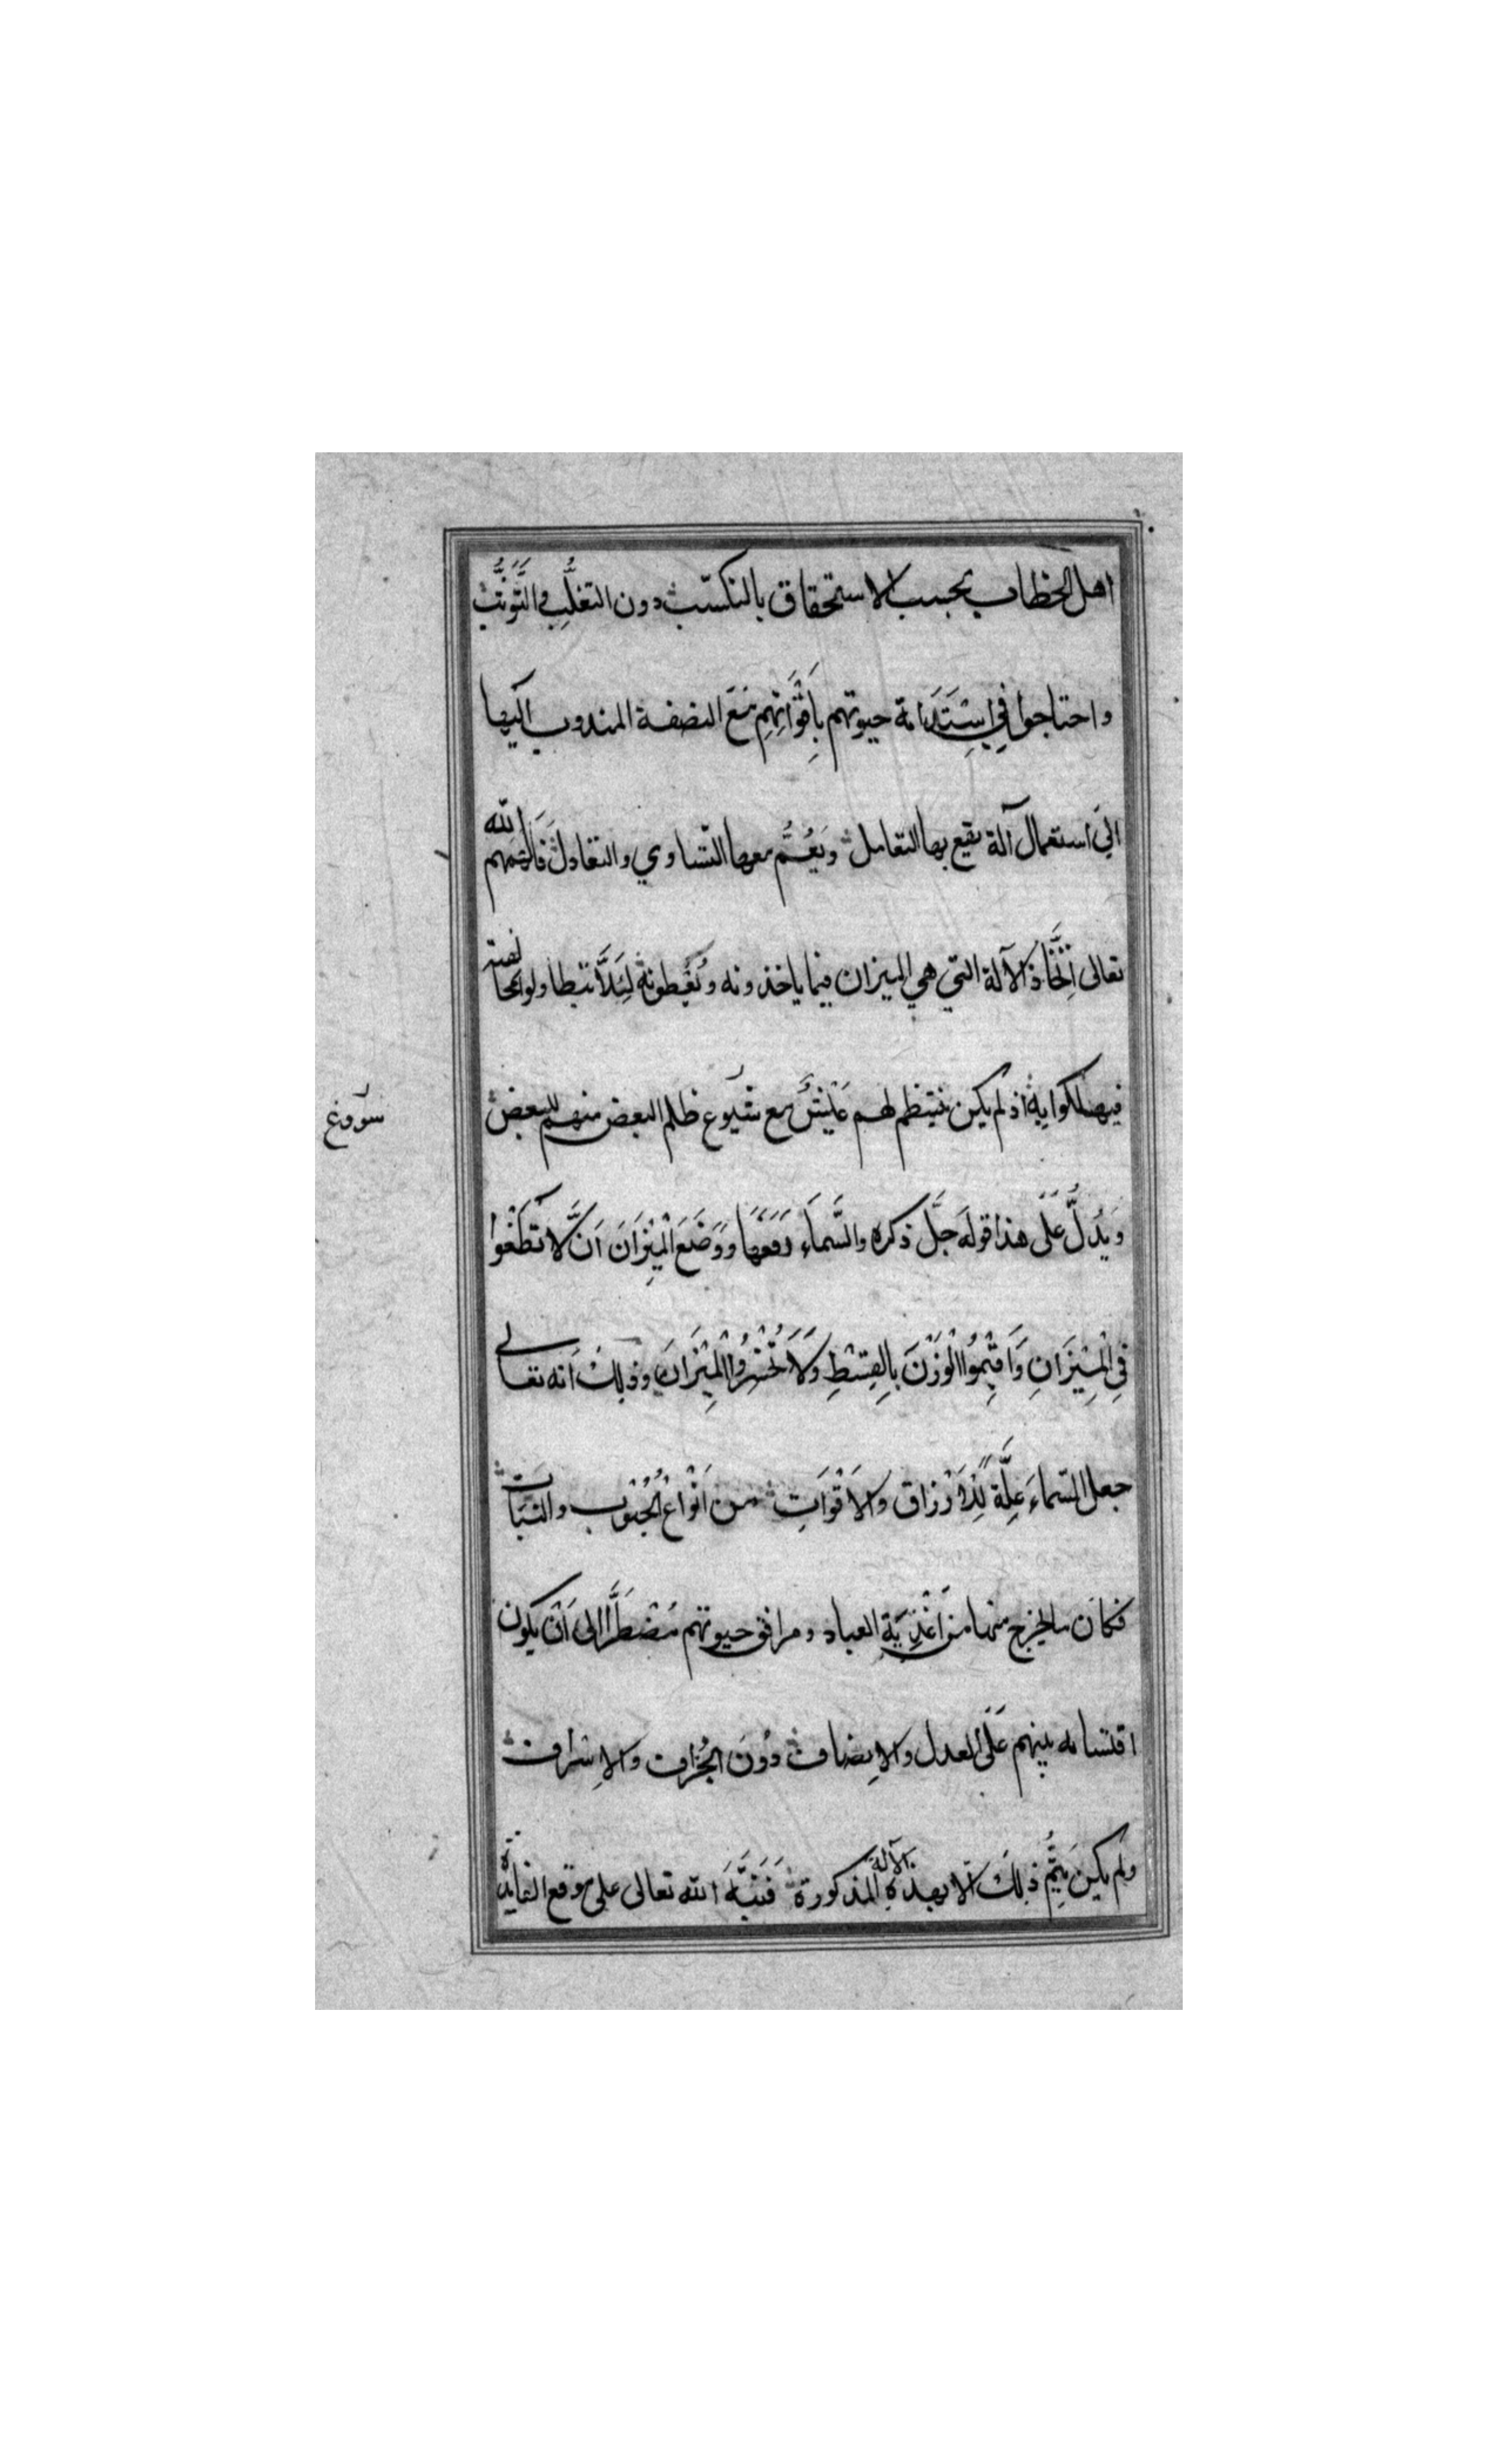 اهل الخطاب بحسب الاستحقاق بالتكسّب دون التغلُّبِ والتَّوَثُّبِ
واحتاجوا في اسْتِدَامة حيوتهم بِأَقْوَاتِهِم مَعَ النصفة المندوب اليها
الى استعمال آلة يقع بها التعامل ويَعُمُّ معها التّساوي والتعادل فَألهَمهم الله
تعالى اتِّخَاذ الآلة التي هي الميزان فيما ياخذونه ويُعْطونه لِئَلَّا
فيهلكوا به اذ لم يكن ينتظم لهم عَيْشٌ مع شيوع ظلم البعض منهم للبعض
وَيَدُلُّ عَلَى هذا قوله جَلَّ ذكره والسَّماءَ رَفَعَهَا وَوَضَعَ الْمِيْزَانَ اَنْ لَّا تَطْغَوْا
فِي الْمِيْزَانِ وَاَقِيْمُوا الْوَزْنَ بِالقِسْطِ وَلَا تُخْسِرُوا الْمِيْزَانَ وذلك اَنه تعالى
جعل السّماءَ عِلَّةً لِلْأَرْزاق والاَقْوَاتِ من اَنْوَاعِ الحُبُوبِ والنَّبَاتِ
فكان ما يخرج منها من اَغْذِيَةِ العباد ومرافق حيوتهم مُضْطَرًّا الى اَنْ يكون
اقتسامه بينهم عَلَى العدل والاِنصاف دُونَ الجُزاف والاِسْراف
ولم يكن يَتِمُّ ذلك اِلّا بهذه الآلة المذكورة فَنَبَّهَ الله تعالى على موقع الفايدة